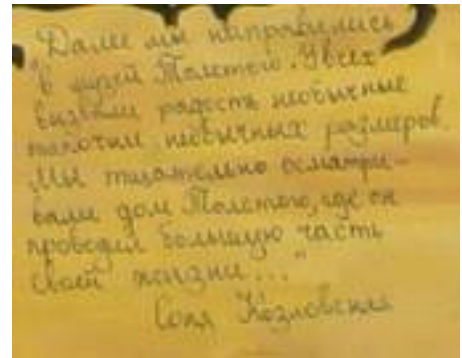 "Далее мы направились
в музей Толстого. У всех
вызвали радость необычные
тапочки необычных размеров.
Мы тщательно осматри-
вали дом Толстого, где он
проводил большую часть
своей жизни..."
Соня Козловская